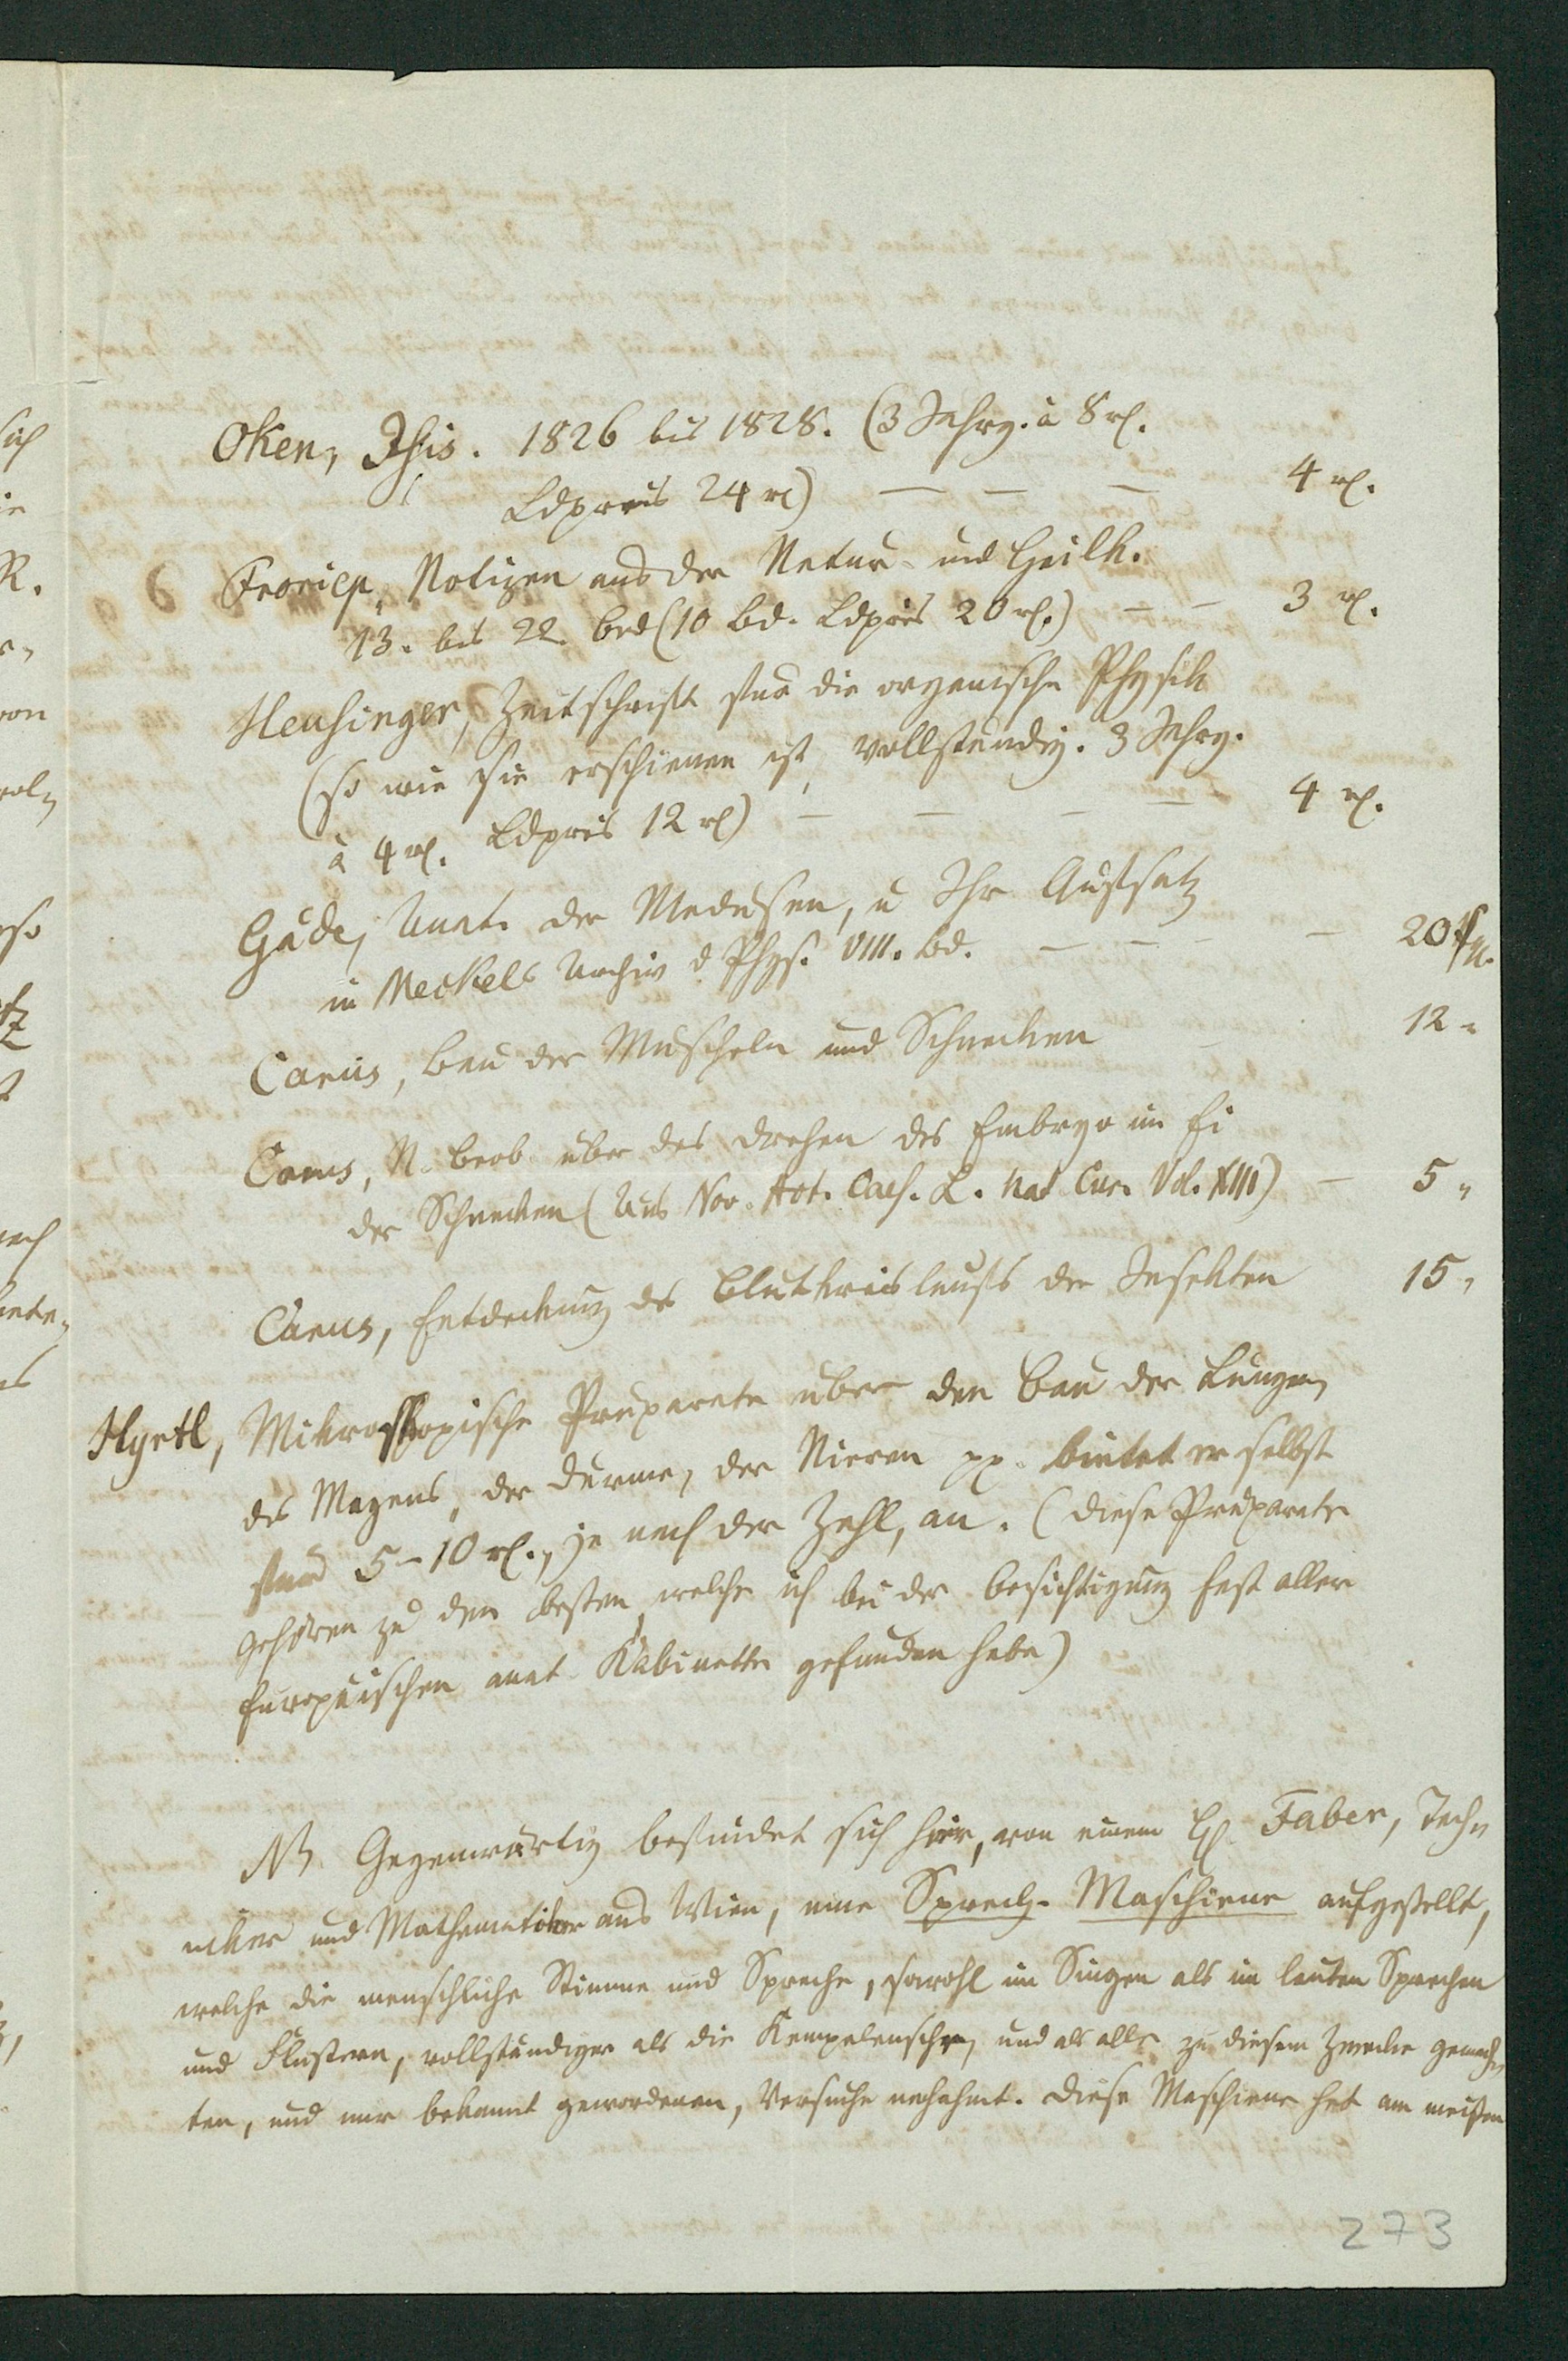 Oken, Isis. 1826 bis 1828. (3 Jahrg. à 8 rl.
Ldpreis 24 rl) — — — 4 rl.
Froriep, Notizen aus der Natur- und Heilk.
13. bis 22. Bd (10 Bd. Ldpreis 20 rl.) — — 3 rl.
Heusinger, Zeitschrift für die organische Physik
(so wie sie erschienen ist, vollständig. 3 Jahrg.
à 4 rl. Ldpreis 12 rl) — — — — 4 rl.
Gäde, Anat. der Medusen, u Ihr Aufsatz
in Meckels Archiv d Phys. VIII. Bd. — — — — 20 Sgr.
Carus, Bau der Muscheln und Schnecken 12 "
Carus, N. Beob. über das Drehen des Embryo im Ei
der Schnecken (Aus Nov. Act. Caes. L. Nat Cur. Vol. XIII) — 5 "
Carus, Entdeckung des Blutkreislaufs der Insekten 15 "
Hyrtl, Mikroskopische Präparate über den Bau der Lungen,
des Magens, der Därme, der Nieren pp. bietet er selbst
für 5-10 rl., je nach der Zahl, an. (Diese Präparate
gehören zu den besten, welche ich bei der Besichtigung fast aller
Europäischen anat. Kabinette gefunden habe)
NB Gegenwärtig befindet sich hier, von einem H. Faber, Tech-
niker und Mathematiker aus Wien, eine Sprech-Maschiene aufgestellt,
welche die menschliche Stimme und Sprache, sowohl im Singen als im lauten Sprechen
und Flüstern, vollständiger als die Kempelensche, und als alle zu diesem Zwecke gemach-
ten, und mir bekannt gewordenen, Versuche nachahmt. Diese Maschiene hat am meisten
273